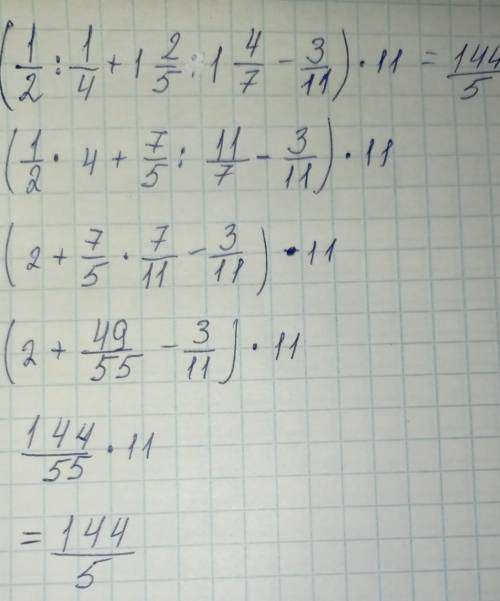 (1/2 : 1/4 + 1 2/5 : 1 4/7 - 3/11) · 11 = 144/5
(1/2 · 4 + 7/5 : 11/7 - 3/11) · 11
(2 + 7/5 · 7/11 - 3/11) · 11
(2 + 49/55 - 3/11) · 11
144/55 · 11
= 144/5